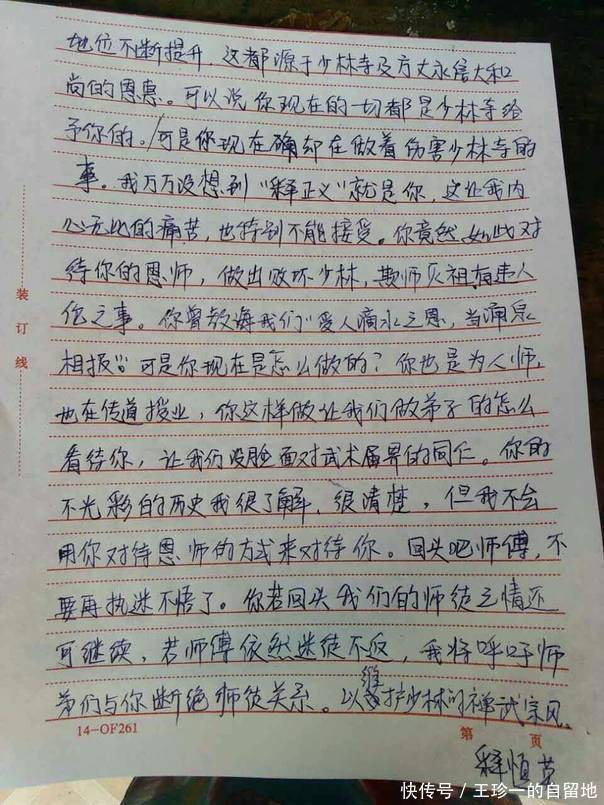 地位不断提升，这都源于少林寺及方丈永信大和
尚的恩惠。可以说你现在的一切都是少林寺给
予你的。可是你现在确却在做着伤害少林寺的
事。我万万没想到“释正义”就是你，这让我内
心无比的痛苦，也特别不能接受。你竟然如此对
待你的恩师，做出败坏少林，欺师灭祖有违人
伦之事。你曾教诲我们“受人滴水之恩，当涌泉
相报”。可是你现在是怎么做的？你也是为人师，
也在传道授业，你这样做让我们做弟子的怎么
看待你，让我们没脸面对武术届界的同仁。你的
不光彩的历史我很了解，很清楚，但我不会
用你对待恩师的方式来对待你。回头吧师傅，不
要再执迷不悟了。你若回头我们的师徒之情还
可继续，若师傅依然迷徒不返，我将呼吁师
弟们与你断绝师徒关系。以维护少林的禅武宗风
释恒
14-OF261
第 页
装订线
快传号／王珍一的自留地